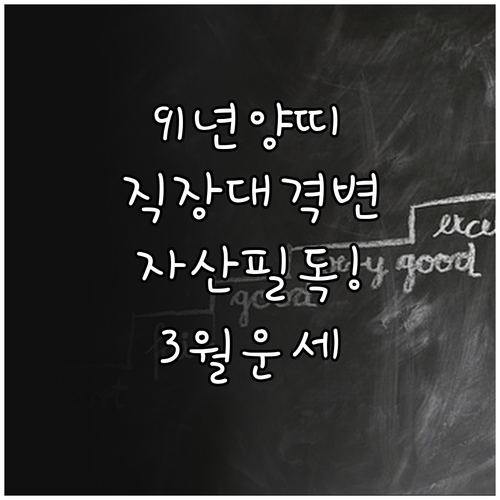 91년양띠
직장대격변
자산필독!
3월운세
very good
good